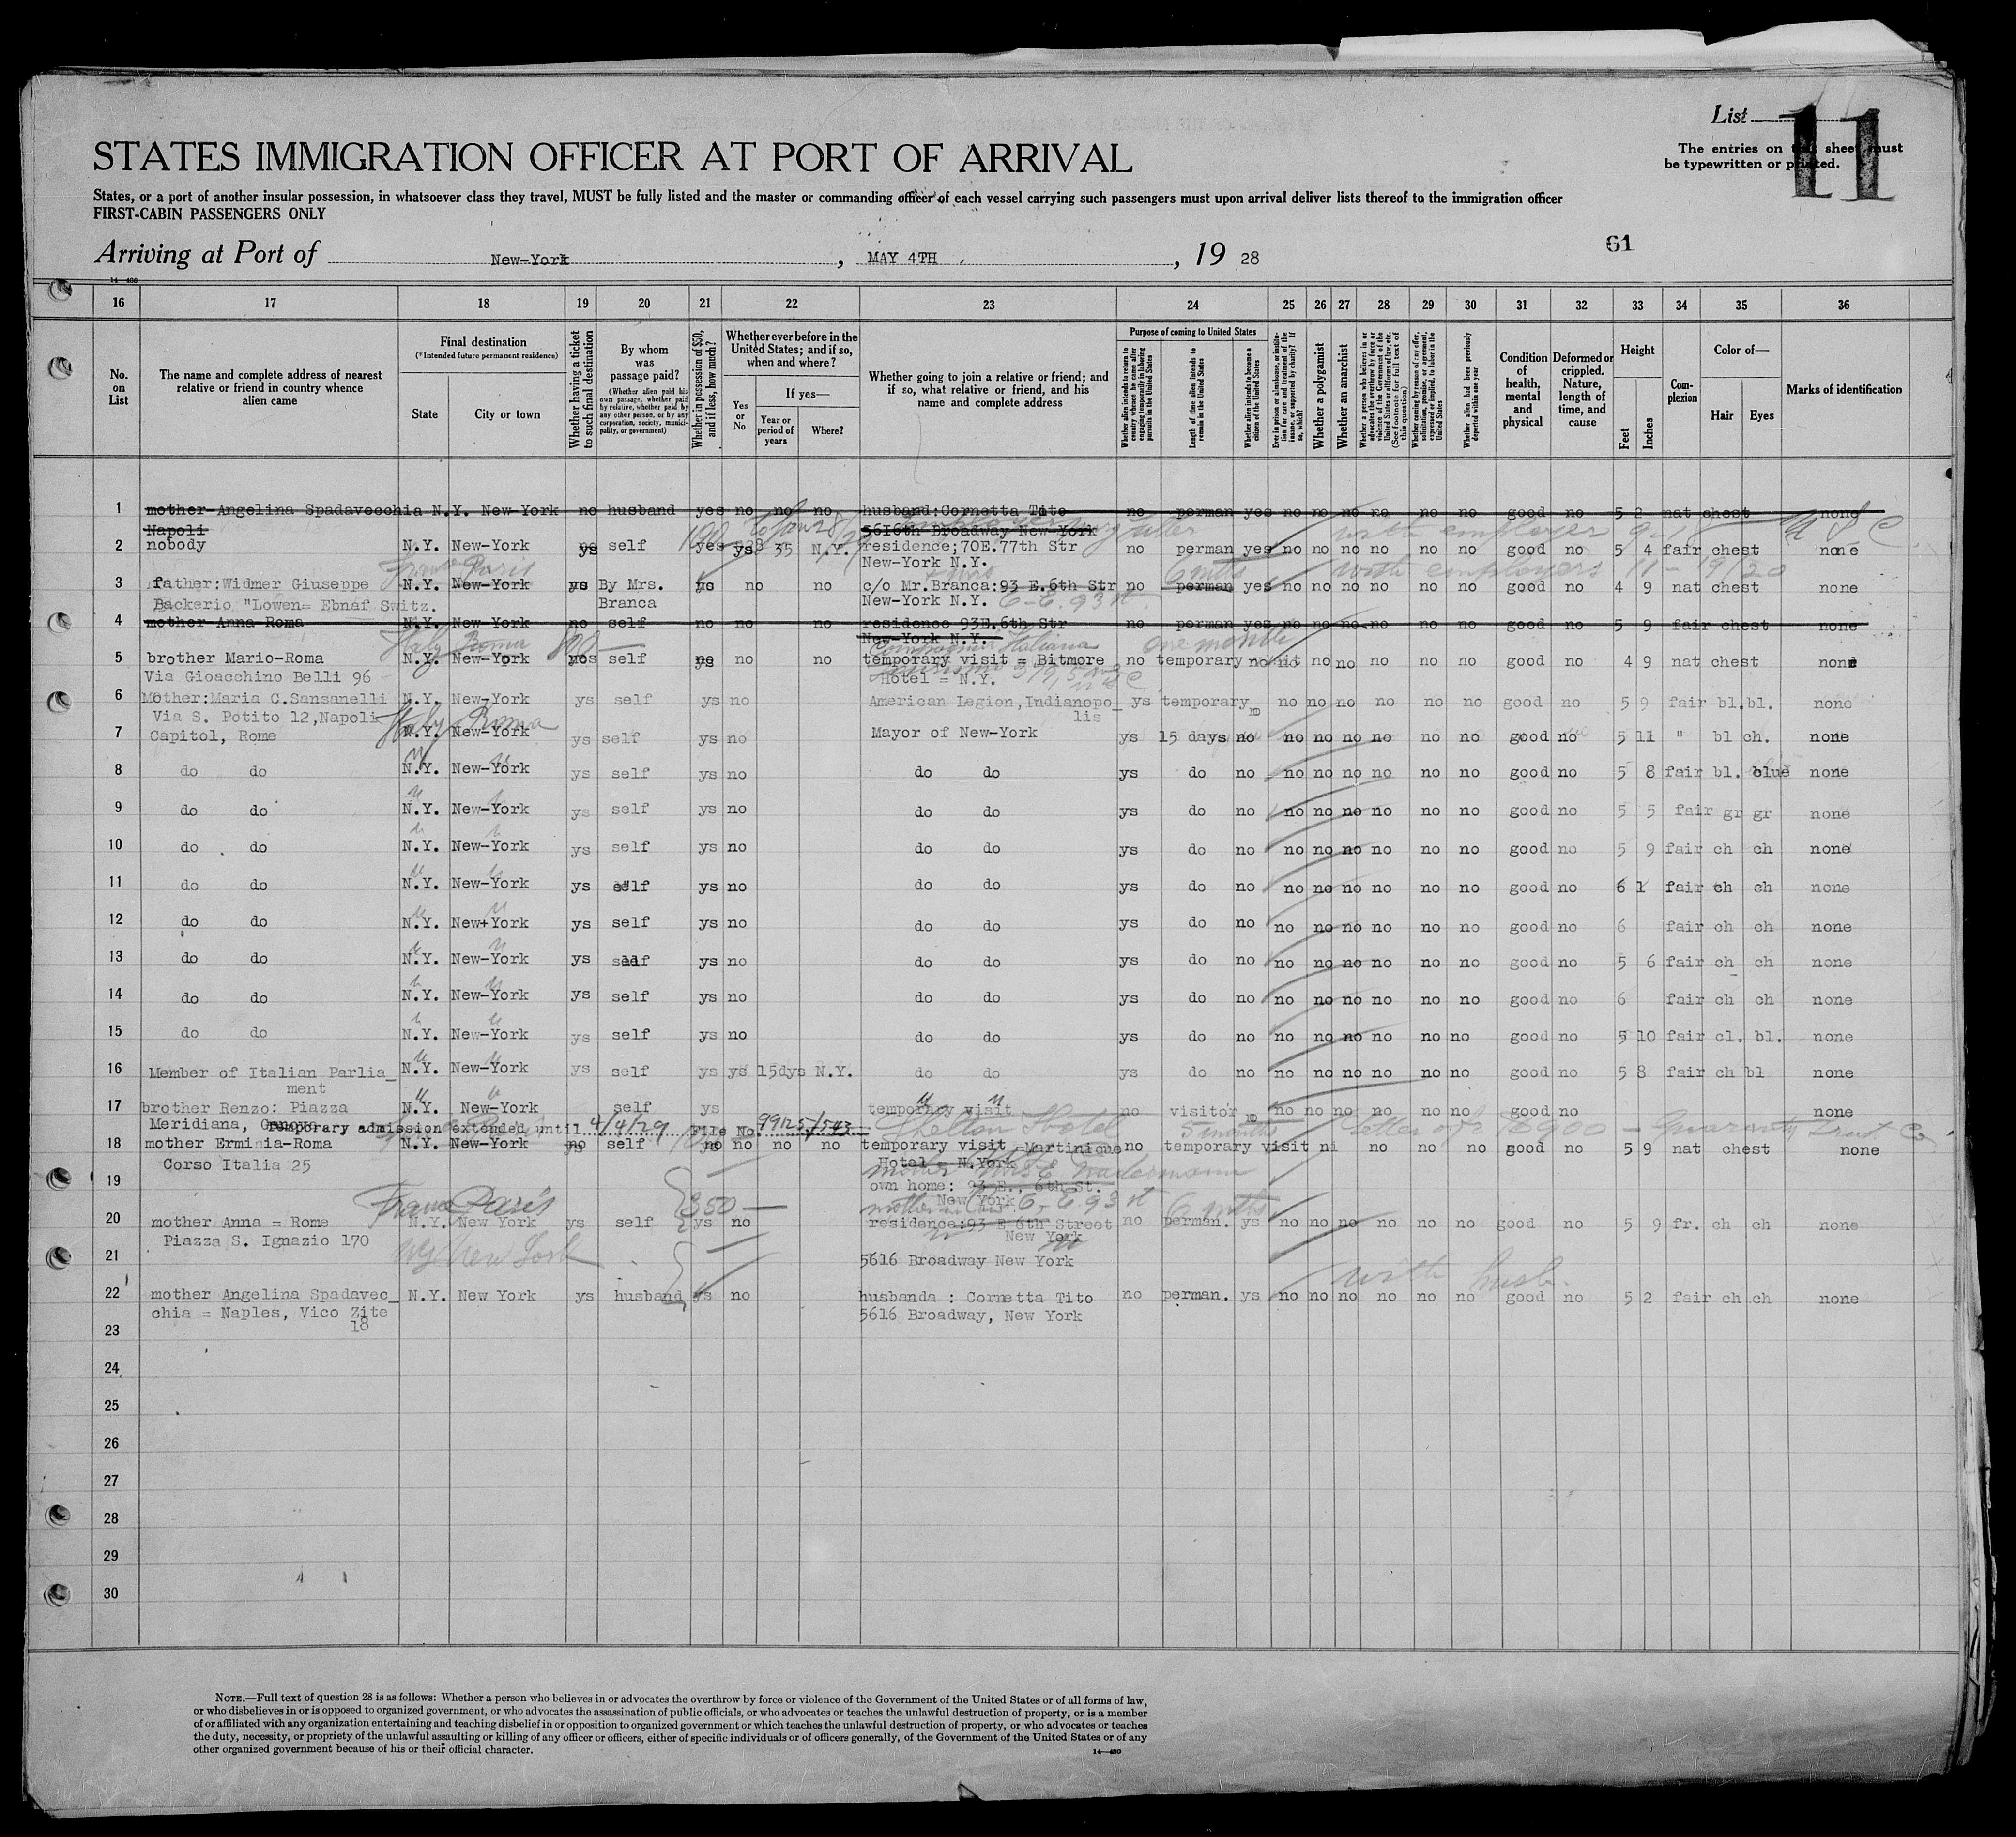 List 11
The entries on this sheet must
be typewritten or printed.
STATES IMMIGRATION OFFICER AT PORT OF ARRIVAL
States, or a port of another insular possession, in whatsoever class they travel, MUST be fully listed and the master or commanding officer of each vessel carrying such passengers must upon arrival deliver lists thereof to the immigration officer
FIRST-CABIN PASSENGERS ONLY
Arriving at Port of New-York, MAY 4TH, 19 28
61
14-480
16 17 18 19 20 21 22 23 24 25 26 27 28 29 30 31 32 33 34 35 36
No. on List
The name and complete address of nearest relative or friend in country whence alien came
Final destination
(*Intended future permanent residence)
State
City or town
Whether having a ticket to such final destination
By whom was passage paid?
(Whether alien paid his own passage, whether paid by relative, whether paid by any other person, or by any corporation, society, municipality, or government)
Whether in possession of $50, and if less, how much?
Whether ever before in the United States; and if so, when and where?
Yes or No
If yes—
Year or period of years
Where?
Whether going to join a relative or friend; and if so, what relative or friend, and his name and complete address
Purpose of coming to United States
Whether alien intends to return to country whence he came after engaging temporarily in laboring pursuits in the United States
Length of time alien intends to remain in the United States
Whether alien intends to become a citizen of the United States
Ever in prison or almshouse, or institution for care and treatment of the insane, or supported by charity? If so, which?
Whether a polygamist
Whether an anarchist
Whether a person who believes in or advocates the overthrow by force or violence of the Government of the United States or all forms of law, etc. (See footnote for full text of this question)
Whether coming by reason of any offer, solicitation, promise, or agreement, expressed or implied, to labor in the United States
Whether alien had been previously deported within one year
Condition of health, mental and physical
Deformed or crippled. Nature, length of time, and cause
Height
Feet
Inches
Complexion
Color of—
Hair
Eyes
Marks of identification
1 mother-Angelina Spadavecchia N.Y. New-York no husband yes no no no husband:Cornetta Tito no perman yes no no no no no no good no 5 2 nat chest none
Napoli 5616th Broadway New-York
with employer
2 nobody N.Y. New-York ys self yes ys 35 N.Y. residence;70E.77th Str no perman yes no no no no no no good no 5 4 fair chest none
New-York N.Y.
Paris 6 mths with employers
3 father:Widmer Giuseppe N.Y. New-York ys By Mrs. ys no no c/o Mr.Branca:93 E.6th Str no perman yes no no no no no no good no 4 9 nat chest none
Backerio "Lowen= Ebnaf Switz. Branca New-York N.Y. 6-E. 93 st
4 mother Anna Roma N.Y. New-York no self no no no residence 93E.6th Str no perman yes no no no no no no good no 5 9 fair chest none
New-York N.Y.
Italy Roma Italiana one month
5 brother Mario-Roma N.Y. New-York yes self ys no no temporary visit = Bitmore no temporary no no no no no no no good no 4 9 nat chest none
Via Gioacchino Belli 96 Hotel = N.Y.
6 Mother:Maria C.Sansanelli N.Y. New-York ys self ys no American Legion,Indianopo_ ys temporary no no no no no no no good no 5 9 fair bl.bl. none
Via S. Potito 12,Napoli lis
Italy Roma
7 Capitol, Rome N.Y. New-York ys self ys no Mayor of New-York ys 15 days no no no no no no no good no 5 11 " bl ch. none
8 do do N.Y. New-York ys self ys no do do ys do no no no no no no no good no 5 8 fair bl. blue none
9 do do N.Y. New-York ys self ys no do do ys do no no no no no no no good no 5 5 fair gr gr none
10 do do N.Y. New-York ys self ys no do do ys do no no no no no no no good no 5 9 fair ch ch none
11 do do N.Y. New-York ys self ys no do do ys do no no no no no no no good no 6 1 fair ch ch none
12 do do N.Y. New+York ys self ys no do do ys do no no no no no no no good no 6 fair ch ch none
13 do do N.Y. New-York ys self ys no do do ys do no no no no no no no good no 5 6 fair ch ch none
14 do do N.Y. New-York ys self ys no do do ys do no no no no no no no good no 6 fair ch ch none
15 do do N.Y. New-York ys self ys no do do ys do no no no no no no no good no 5 10 fair cl. bl. none
16 Member of Italian Parlia_ N.Y. New-York ys self ys ys 15dys N.Y. do do ys do no no no no no no no good no 5 8 fair ch bl none
ment
17 brother Renzo: Piazza N.Y. New-York self ys temporary visit no visitor no no no no no no no good no none
Meridiana, Genova Shelton Hotel 5 months letter of
Temporary admission extended until 4/4/29 File No. 99125/543
18 mother Erminia-Roma N.Y. New-York ys self no no no no temporary visit -Martinique no temporary visit ni no no no good no 5 9 nat chest none
Corso Italia 25 Hotel = N.York
19 own home: 93 E., 6th St.
New York 6, E. 93 st
France Paris 350 — 6 mths
20 mother Anna = Rome N.Y. New York ys self ys no residence:93 E 6th Street no perman. ys no no no no no no good no 5 9 fr. ch ch none
Piazza S. Ignazio 170 New York
NY New York
21 5616 Broadway New York
with husb.
22 mother Angelina Spadavec_ N.Y. New York ys husband ys no husbanda : Cornetta Tito no perman. ys no no no no no no good no 5 2 fair ch ch none
chia = Naples, Vico Zite 5616 Broadway, New York
18
23
24
25
26
27
28
29
30
NOTE.—Full text of question 28 is as follows: Whether a person who believes in or advocates the overthrow by force or violence of the Government of the United States or of all forms of law,
or who disbelieves in or is opposed to organized government, or who advocates the assassination of public officials, or who advocates or teaches the unlawful destruction of property, or is a member
of or affiliated with any organization entertaining and teaching disbelief in or opposition to organized government or which teaches the unlawful destruction of property, or who advocates or teaches
the duty, necessity, or propriety of the unlawful assaulting or killing of any officer or officers, either of specific individuals or of officers generally, of the Government of the United States or of any
other organized government because of his or their official character.
14-480